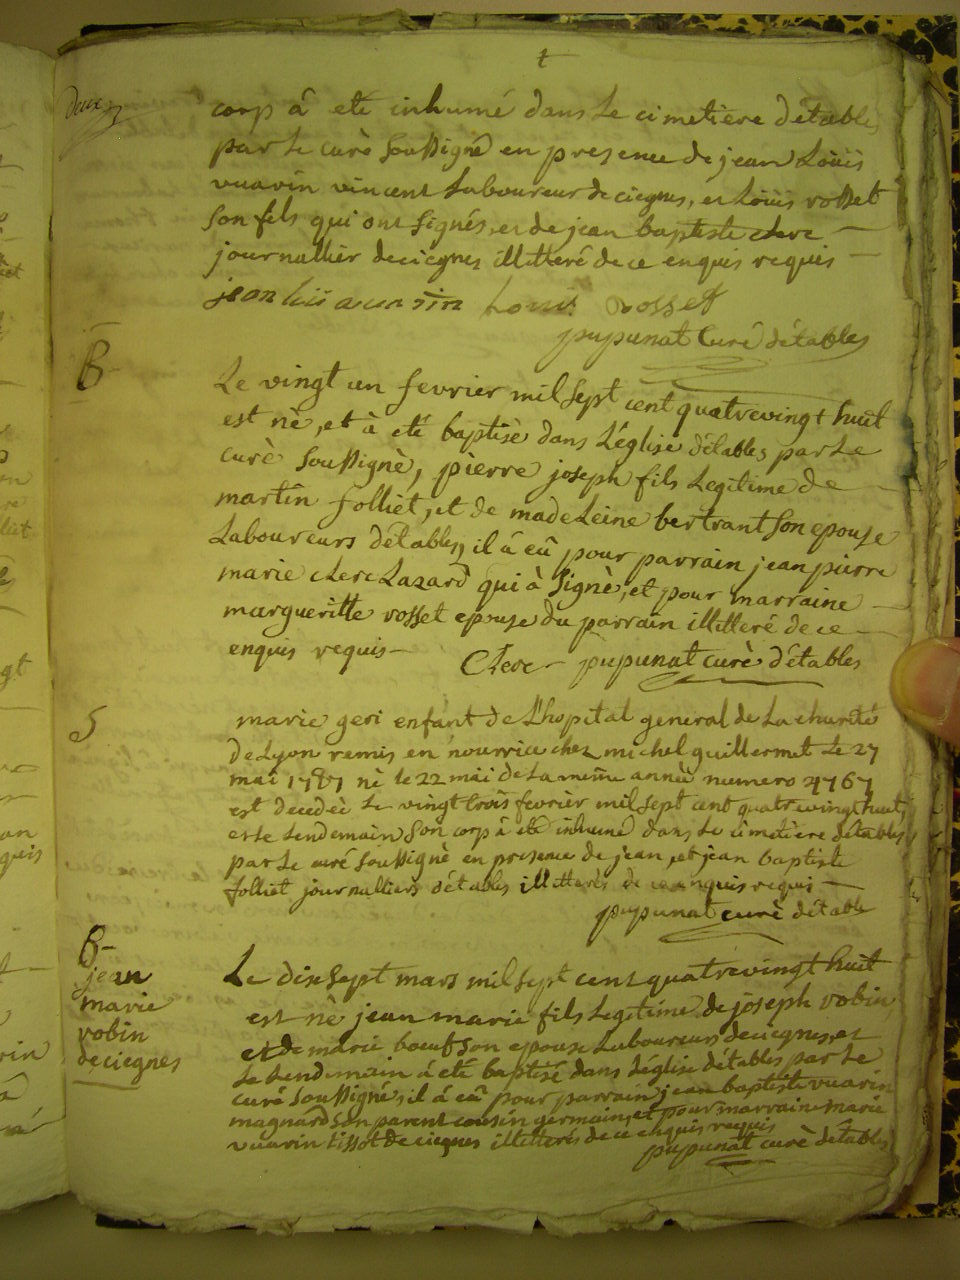 deux
corp â eté inhumé dans Le cimetiere détables
par Le curè Soussigné en presence de jean Loüis
vuarin vincent Laboureur de ciegnes, et Loüis rosset
Son fils qui ont Signés, et de jean baptiste clerc
journallier deciegnes illitteré de ce enquis requis
jean luis Louis Rosset
pupunat Curé détables
B
Le vingt un fevrier mil Sept cent quatrevingt huit
est nè, et à eté baptisè dans L'église détables par Le
curè Soussignè, pierre joseph fils Legitime de
martin folliet, et de madeLeine bertrant Son epouse
Laboureurs détables, il â eû pour parrain jean pierre
marie clerc Lazard qui à Signè, et pour marraine
margueritte rosset epouse du parrain illitteré de ce
enquis requis
Clerc pupunat curè détables
S
marie geri enfant de L'hopital general de La charité
de Lyon remis en nourrice chez michel guillermet Le 27
mai 1787 né le 22 mai de La même année numero 4767
est decedeé Le vingt trois fevrier mil Sept cent quatrevingt huit,
et Le Lendemain Son corp â eté inhumé dans Le cimetière détables
par Le curé Soussignè en presence de jean, et jean baptiste
folliet journalliers détables illitterés de ce enquis requis
pupunat curè détable
B
jean
marie
robin
deciegnes
Le dix Sept mars mil Sept cent quatrevingt huit
est nè jean marie fils Legitime de joseph robin
et de marie boeuf Son epouse Laboureurs deciegnes, et
Le Lendemain à eté baptisé dans L'église détables par Le
curé Soussigné, il â eû pour parrain jean baptiste vuarin
magnard Son parent cousin germain, et pour marraine marie
vuarin tissot de ciegnes illitterés de ce enquis requis
pupunat curè détables